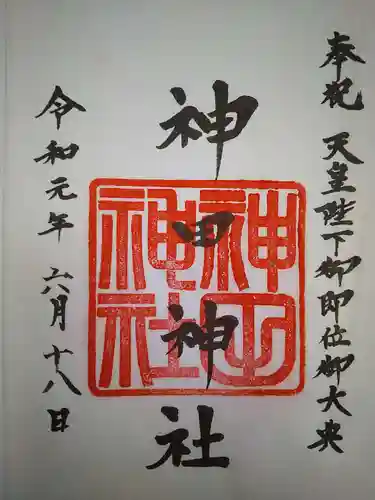 奉祝 天皇陛下御即位御大典
神田神社
神田神社
令和元年 六月十八日